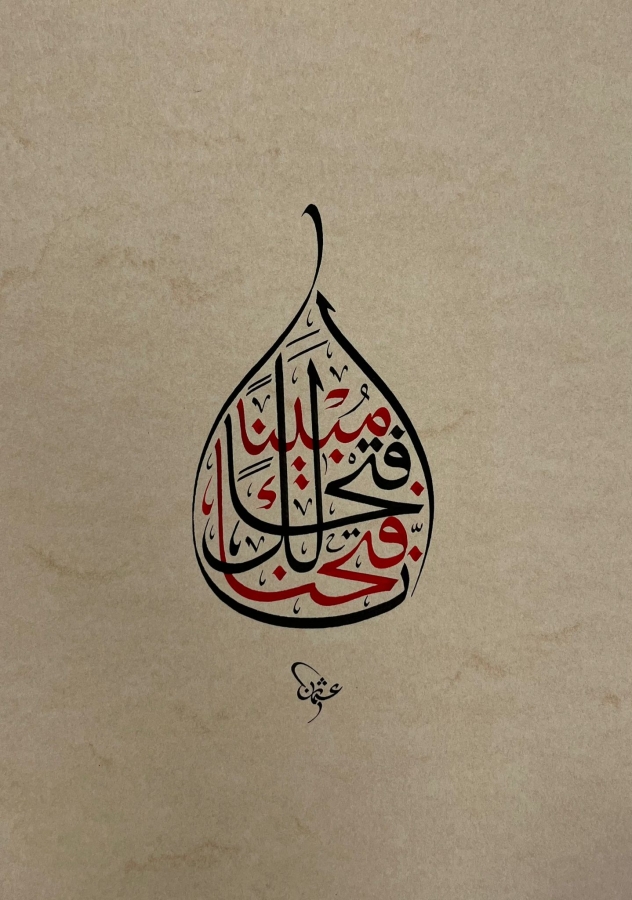 إنا فتحنا لك فتحًا مُبينًا
عثمان